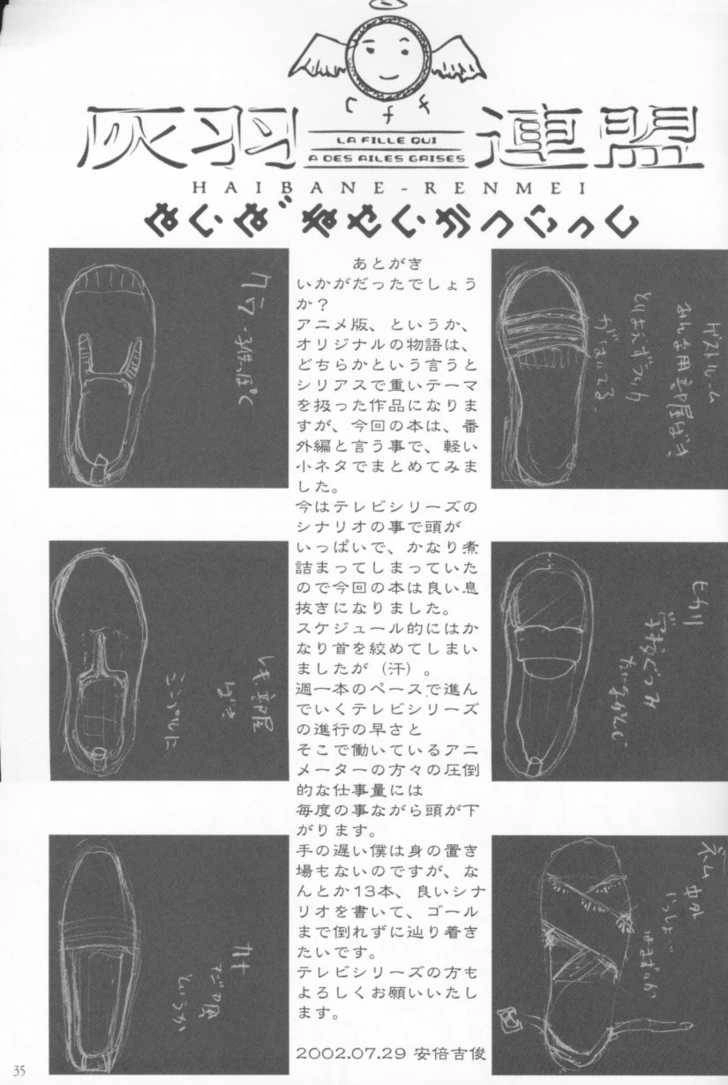 cff
灰羽連盟
LA FILLE QUI
A DES AILES GRISES
HAIBANE-RENMEI
はいばねせいかついっし
あとがき
いかがだったでしょう
か?
アニメ版、というか、
オリジナルの物語は、
どちらかという言うと
シリアスで重いテーマ
を扱った作品になりま
すが、今回の本は、番
外編と言う事で、軽い
小ネタでまとめてみま
した。
今はテレビシリーズの
シナリオの事で頭が
いっぱいで、かなり煮
詰まってしまっていた
ので今回の本は良い息
抜きになりました。
スケジュール的にはか
なり首を絞めてしまい
ましたが(汗)。
週一本のペースで進ん
でいくテレビシリーズ
の進行の早さと
そこで働いているアニ
メーターの方々の圧倒
的な仕事量には
毎度の事ながら頭が下
がります。
手の遅い僕は身の置き
場もないのですが、な
んとか13本、良いシナ
リオを書いて、ゴール
まで倒れずに辿り着き
たいです。
テレビシリーズの方も
よろしくお願いいたし
ます。
2002.07.29 安倍吉俊
クラ
ゲストルーム
みんな用部屋ばき
とりあえずクツ
がまいてる
レキ部屋
ばき
ヒカリ
カナ
ネム
35